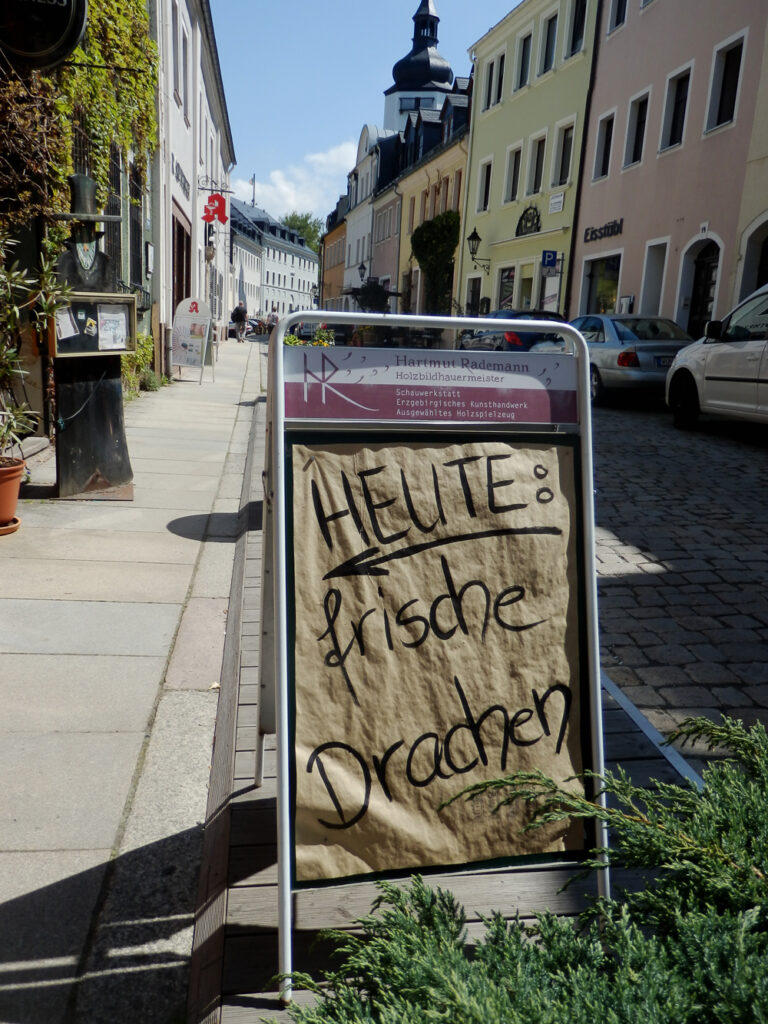 Eisstübl
P
HR
Hartmut Rademann
Holzbildhauermeister
Schauwerkstatt
Erzgebirgisches Kunsthandwerk
Ausgewähltes Holzspielzeug
HEUTE:
frische
Drachen